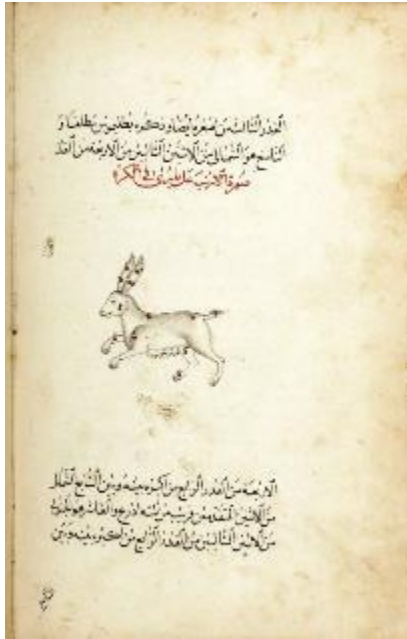 القدر الثالث من صغره ايضا وذكره بطلميوس مطلقا و
التاسع هو الشمالى من الاثنين التاليين من الاربعة من القدر
صورة الارنب على ما يرى فى الكرة
الاربعة من القدر الرابع من اكبره بينه وبين التاسع الشمالى
من الاثنين المتقدمين قريب من ذراع والعاشر هو
من الاثنين التاليين من القدر الرابع من اكبره بينه وبين